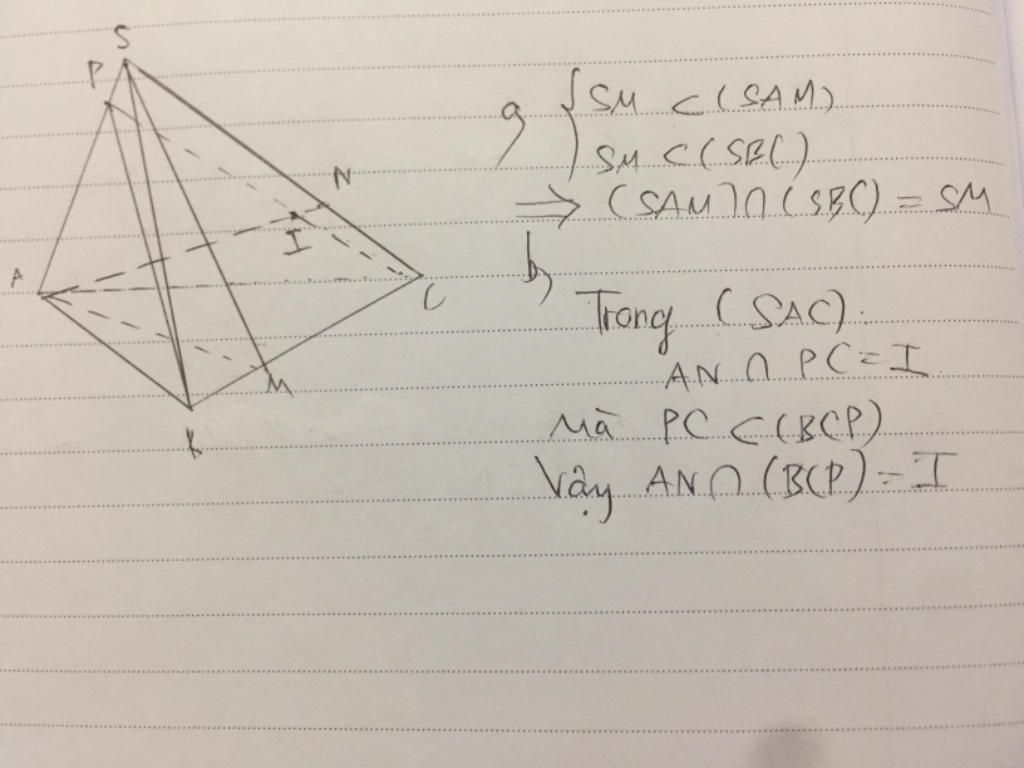 S
P
N
I
A
C
M
B
a) { SM ⊂ (SAM)
SM ⊂ (SBC)
⇒ (SAM) ∩ (SBC) = SM
b)
Trong (SAC):
AN ∩ PC = I
Mà PC ⊂ (BCP)
Vậy AN ∩ (BCP) = I